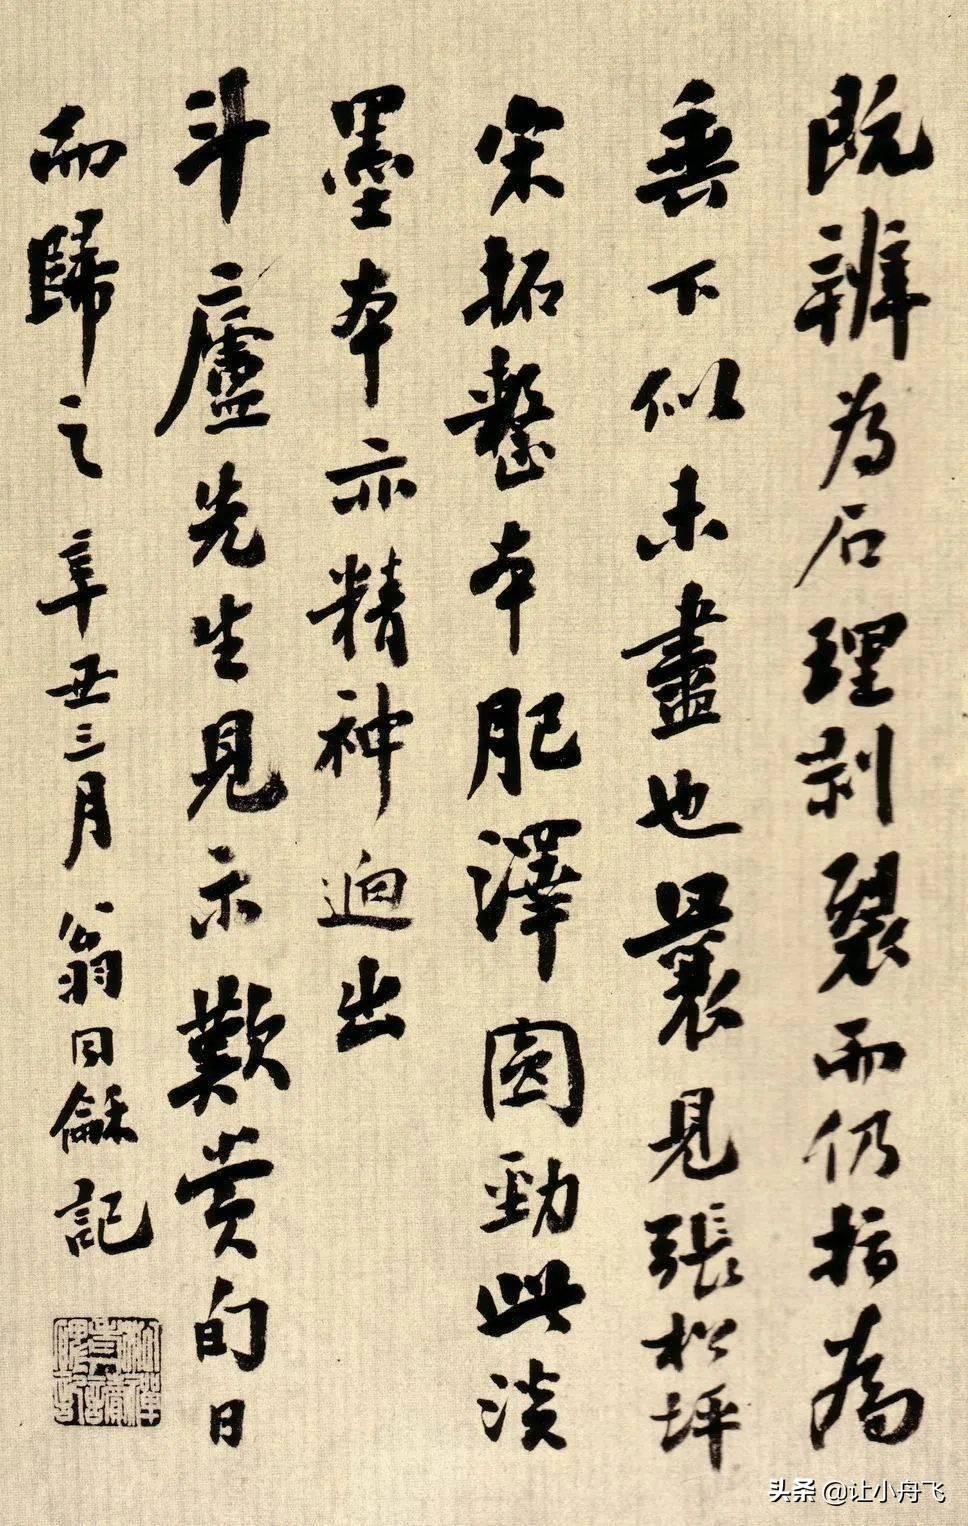 既辨為石理剥裂而仍指為
垂下似未盡也曩見張松坪
宋拓整本肥澤圓勁此淡
墨本亦精神迥出
斗廬先生見示歎賞旬日
而歸之辛丑三月翁同龢記
头条 @让小舟飞